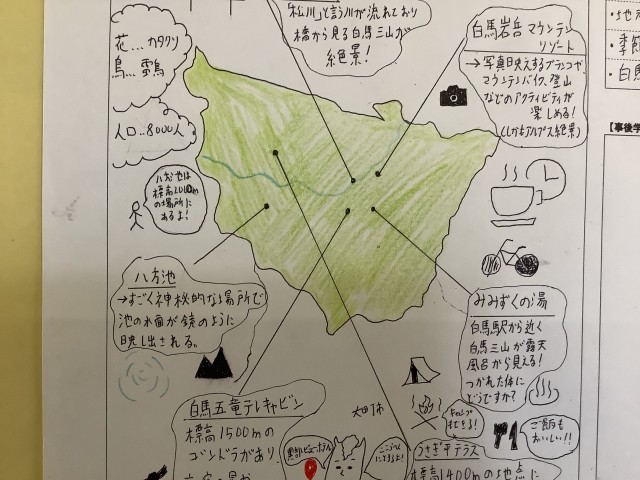 「松川」と言う川が流れており
橋から見る白馬三山が
絶景!
白馬岩岳マウンテン
リゾート
→写真映えするブランコや
マウンテンバイク、登山
などのアクティビティが
楽しめる!
(しかもアルプス絶景)
・地元
・季節
・白馬
【事後学
花…カタクリ
鳥…雷鳥
人口…8000人
八方池は
標高2000m
の場所に
あるよ!
八方池
→すごく神秘的な場所で
池の水面が鏡のように
映し出される。
みみずくの湯
白馬駅から近く
白馬三山が露天
風呂から見える!
つかれた体に
どうですか?
白馬五竜テレキャビン
標高1500mの
ゴンドラがあり
キャンプ
も出来る!
ご飯も
おいしい!!
うさぎ平テラス
標高1400mの地点に